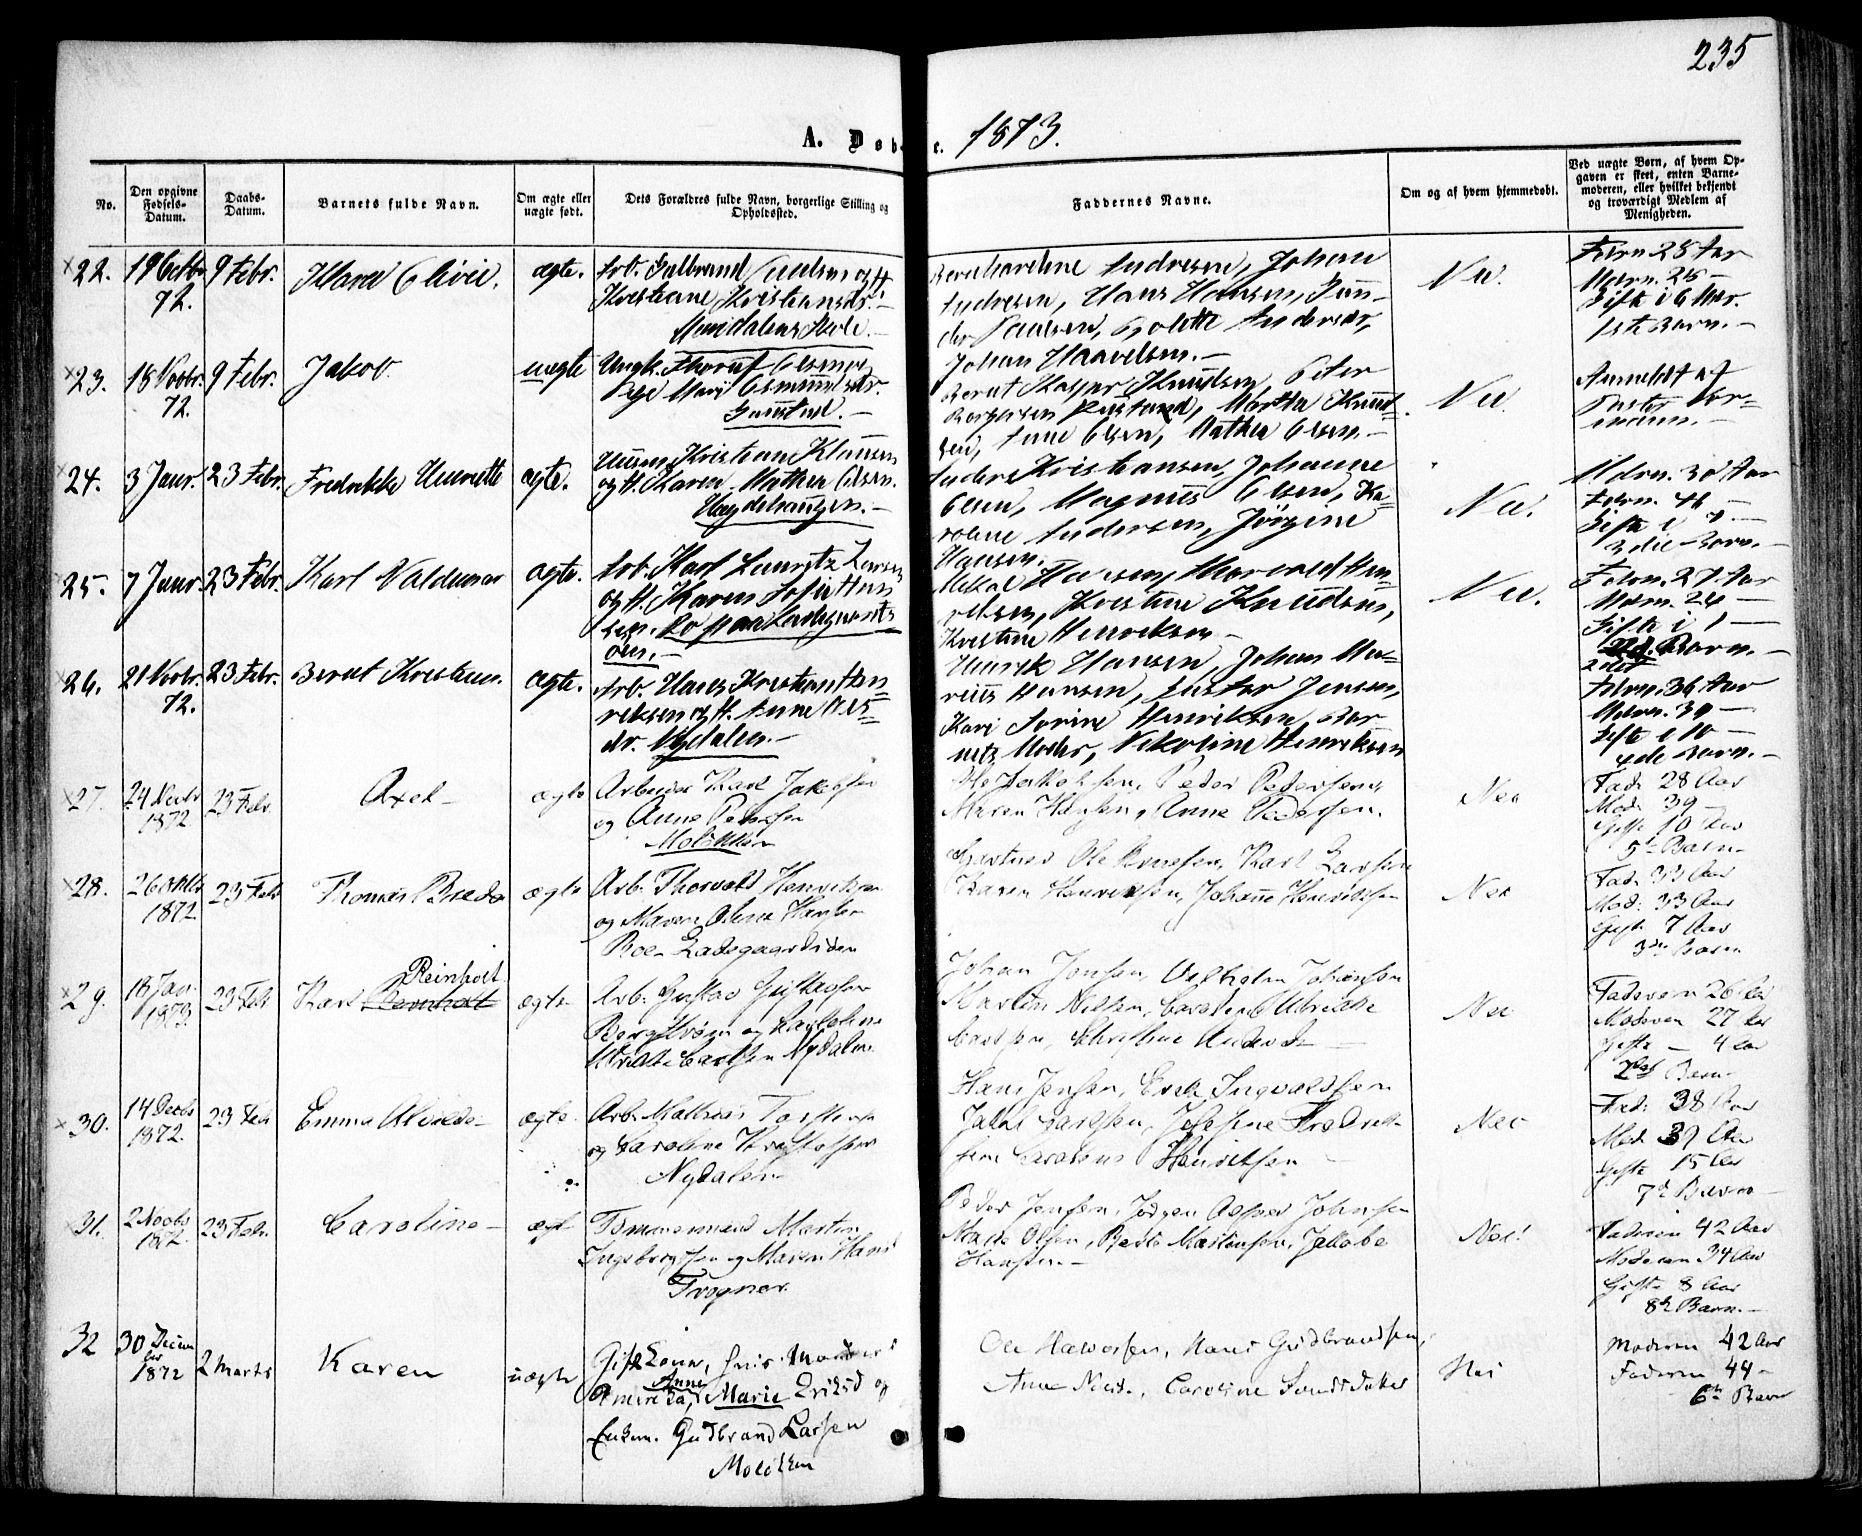 235
A. Døbte. 1873.
No.
Den opgivne Fødsels-Datum.
Daabs-Datum.
Barnets fulde Navn.
Om ægte eller uægte født.
Dets Forældres fulde Navn, borgerlige Stilling og Opholdssted.
Faddernes Navne.
Om og af hvem hjemmedøbt.
Ved uægte Børn, af hvem Opgaven er skeet, enten Barnemoderen, eller hvilket bekjendt og troværdigt Medlem af Menigheden.
22. 19 Octbr. 72. 9 Febr. Maria Olivie. ægte.
Arb. Gulbrand Paulsen og H.
Kristiane Kristiansdr.
Maridalens Skole.
Bernhardine Andresen, Johan
Andresen, Hans Hansen, Gun-
der Paulsen, Golette Andersdr,
Johan Haavelsen.
Nei.
Fdrn 28 Aar
Mdrn. 28
Gifte i 6 Aar.
1ste Barn.
23. 18 Novbr. 72. 9 Febr. Jakob. uægte
Ungk. Olsen og
Pige Mari Osmundsdr.
Berat Kasper Knudsen, Peter
Bergersen, Martha Knud-
sen, Anne Olsen, Mathea Olsen.
Nei.
Anmeldt af
Pastor
24. 3 Janr. 23 Febr. Fredrikke Henriette ægte.
Kristian Klausen
og H. Karen Mathea Olsen.
Anders Kristiansen, Johanne
Olsen, Magnus Olsen, Ka-
roline Andersen, Jørgine
Hansen.
Nei.
Mdrn. 30 Aar
Fdrn. 46
Gifte i 7.
3die Barn.
25. 7 Janr. 23 Febr. Karl Valdemar ægte.
Arb. Karl Lauritz Larsen
og H. Karen Sofie Han-
sen. Bo paa Ladegaards-
øen.
Mikal Hansen, Thorvald Hen-
riksen, Kristine Knudsen,
Kristine Henriksen
Nei.
Fdrn. 27 Aar
Mdrn. 24
Gifte i 1
2det Barn.
26. 21 Novbr. 72. 23 Febr. Bernt Kristian. ægte.
Arb. Hans Kristian Hen-
riksen og H. Anne Nils-
dr. Nydalen.
Henrik Hansen, Johan Ma-
rius Hansen, Gustav Jensen,
Kari Sorine Henriksen, Bar-
nets Moder, Nikoline Henriksen
Fdrn. 36 Aar
Mdrn. 39
Gifte i 10
4de Barn.
27. 24 Novbr 1872 23 Febr Axel ægte
Arbeider Karl Jakobsen
og Anne Pedersen
Møløkken
Ole Jakobsen, Peder Pedersen,
Maren Hansen, Anne Pedersen.
Nei
Fad. 28 Aar
Mod. 39
Gifte 10 Aar
5te Barn
28. 26 Oktbr 1872 23 Feb Thomas Breda ægte
Arb. Thorvald Henriksen
og Maren Oline Hansen
Boe. Ladegaardsøen
Gaardmd Ole Arnesen, Karl Larsen
Karen Henriksen, Johanne Henriksen
Nei
Fad. 33 Aar
Mod. 33 Aar
Gifte 7 Aar
3die Barn
29. 18 Jan 1873. 23 Feb Karl Reinholt ægte
Arb. Gustav Gustavsen
Bergstrøm og Karoline
Ulrikke Carlsen Nydalen
Johan Jensen, Vilhelm Johansen
Martin Nilsen, Caroline Ulrikke
Carlsen, Christine
Nei
Faderen 26 Aar
Moderen 27 Aar
Gifte 4 Aar
2det Barn
30. 14 Decbr 1872. 23 Feb Emma Alvilde ægte
Arb. Mathias Torstensen
og Karoline Kristofsen
Nydalen
Hans Jensen, Erik Ingvaldsen
Jakob Larssen, Josefine Fredrik-
sen Karoline Henriksen
Nei
Fad. 38 Aar
Mod. 39 Aar
Gifte 15 Aar
7de Barn
31. 2 Novbr 1872. 23 Febr. Caroline ægte
Tømmermand Martin
Ingebrigtsen og Maren Hansd
Frogner.
Peder Jensen, Jørgen Johnsen
Marte Olsen, Berte Martinsen, Jakobe
Hansen.
Nei!
Faderen 42 Aar
Moderen 34 Aar
Gifte 8 Aar
8de Barn.
32 30 Decem ber 1872 2 Marts Karen uægte
Gift Kone, hvis Mand er i
Amerika, Anne Marie Eriksd og
Enkem. Gudbrand Larsen
Moløkken
Ole Halvorsen, Hans Gudbrandsen,
Anne Nilsd., Caroline Sandbakken
Nei
Moderen 42 Aar
Faderen 49
6te Barn